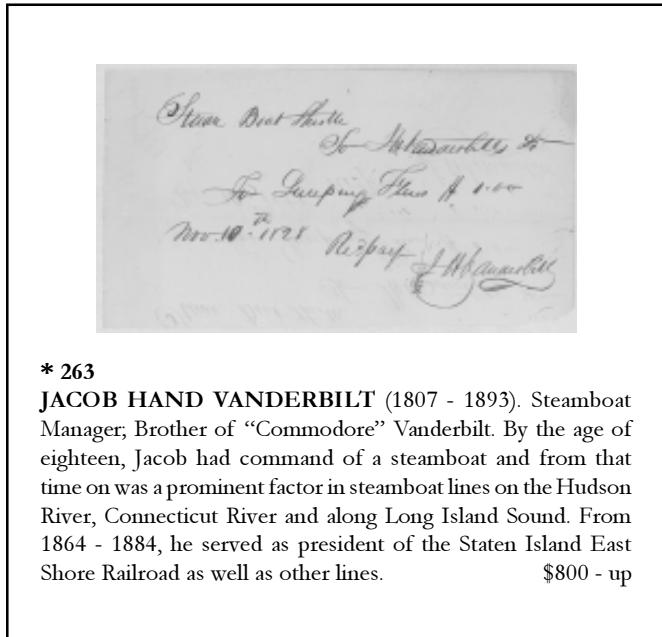 Steam Boat Thistle
To J H Vanderbilt Dr
To Sweeping Flues $ 1.00
Nov. 10th 1828
Recd pay
J H Vanderbilt
* 263
JACOB HAND VANDERBILT (1807 - 1893). Steamboat
Manager; Brother of “Commodore” Vanderbilt. By the age of
eighteen, Jacob had command of a steamboat and from that
time on was a prominent factor in steamboat lines on the Hudson
River, Connecticut River and along Long Island Sound. From
1864 - 1884, he served as president of the Staten Island East
Shore Railroad as well as other lines. $800 - up